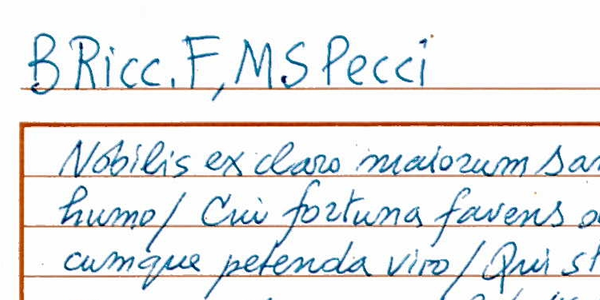 B Ricc. F, MS Pecci
Nobilis ex claro maiorum san
humo/ Cui fortuna favens
cumque petenda viro/ Qui st